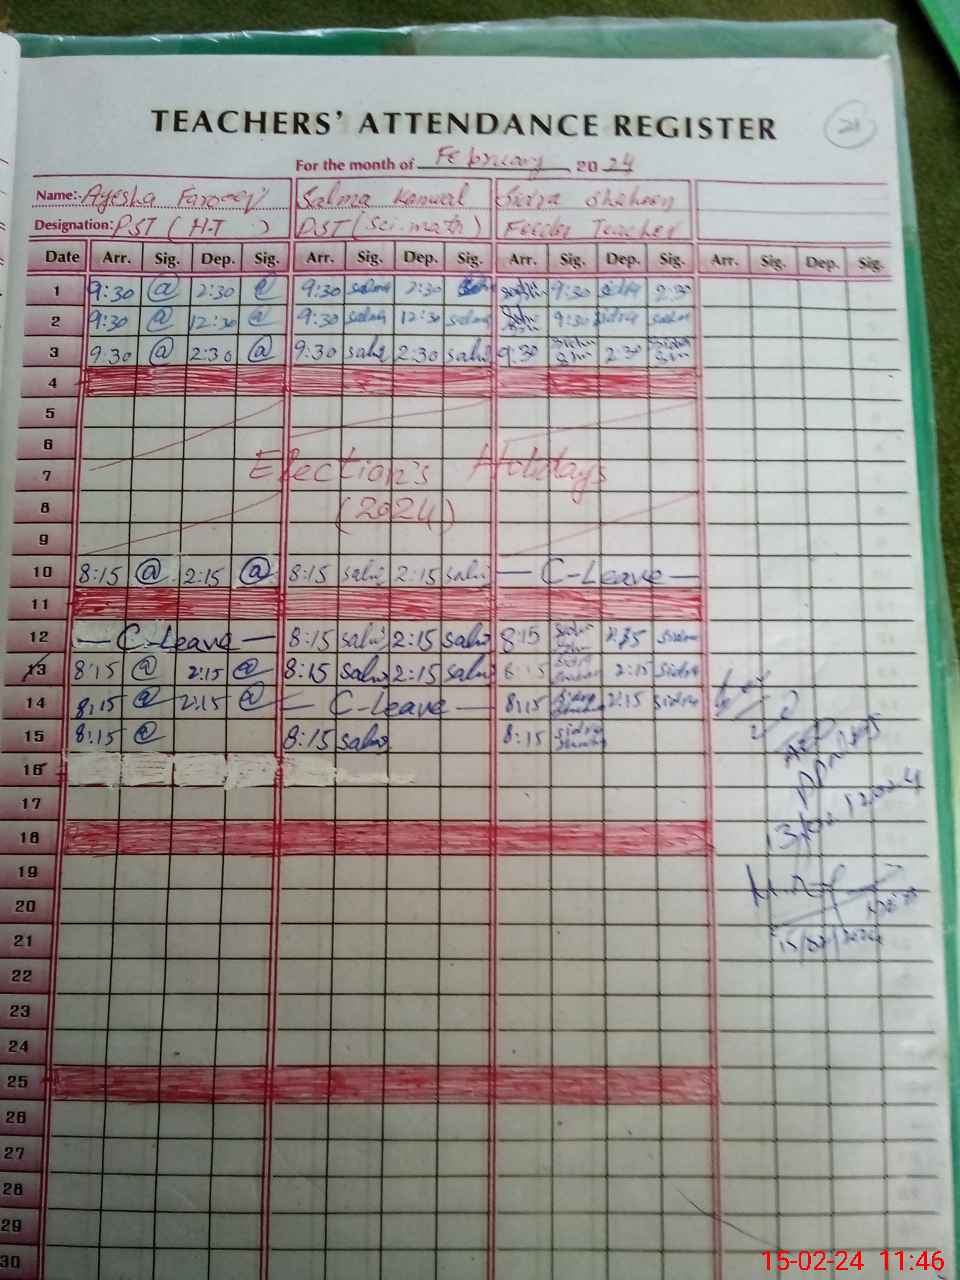 TEACHERS' ATTENDANCE REGISTER
21
For the month of February 2024
Name:- Ayesha Farooq Salma Kanwal Sidra Shaheen
Designation: PST (H.T) PST (Sci.math) Feeder Teacher
Date Arr. Sig. Dep. Sig. Arr. Sig. Dep. Sig. Arr. Sig. Dep. Sig. Arr. Sig. Dep. Sig.
1 9:30 @ 2:30 @ 9:30 salma 2:30 9:30 sidra 2:30
2 9:30 @ 12:30 @ 9:30 salma 12:30 salma 9:30 sidra
3 9:30 @ 2:30 @ 9:30 salm 2:30 salm 9:30 2:30
4
5
6
7 Election's Holidays
8 (2024)
9
10 8:15 @ 2:15 @ 8:15 salm 2:15 salm — C-Leave —
11
12 — C-Leave — 8:15 salm 2:15 salm 8:15 sidra
13 8:15 @ 2:15 @ 8:15 salm 2:15 salm 8:15 2:15 sidra
14 8:15 @ 2:15 @ — C-Leave — 8:15 sidra 2:15 sidra
15 8:15 @ 8:15 salm 8:15 sidra
16
17
18
13/02/2024
19
20
21
15/02/2024
22
23
24
25
26
27
28
29
30
15-02-24 11:46